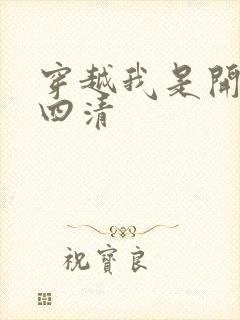 穿越我是開
四清
祝寶良